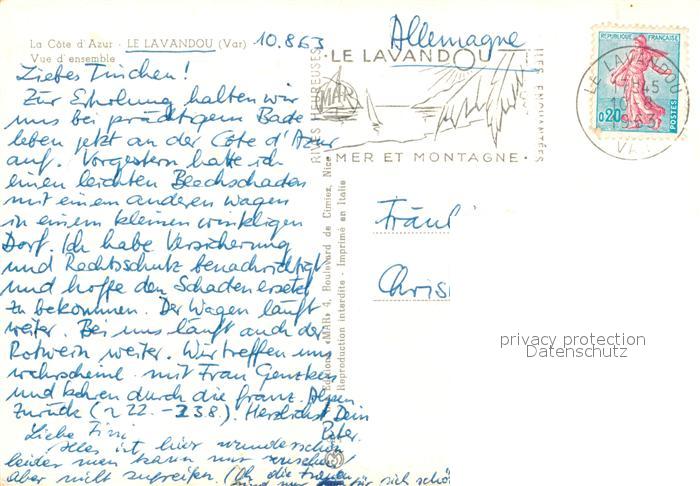 La Côte d'Azur - LE LAVANDOU (Var) 10.8.63
Vue d'ensemble
Liebes Tinchen!
Zur Erholung halten wir
uns bei prächtigem Bade
leben jetzt an der Côte d'Azur
auf. Vorgestern hatte ich
einen leichten Blechschaden
mit einem anderen Wagen
in einem kleinen winkligen
Dorf. Ich habe Versicherung
und Rechtsschutz benachrichtigt
und hoffe den Schaden ersetzt
zu bekommen. Der Wagen läuft
weiter. Bei uns läuft auch der
Rotwein weiter. Wir treffen uns
wahrscheinl. mit Frau Genzken
und kehren durch die franz. Alpen
zurück (~22.-23.8). Herzlichst Dein
Peter.
Liebe Tini
Alles ist hier wunderschön
leider man kann nur
aber nicht zugreifen. (Ich die Frauen
sind nur für sich schö
Allemagne
RIVES HEUREUSES
LE LAVANDOU
ILES
MAR
MER ET MONTAGNE
REPUBLIQUE FRANÇAISE
0,20
POSTES
LE LAVANDOU
1745
10-8
1963
VAR
Editions «MAR» 4, Boulevard de Cimiez, Nice
Reproduction interdite - Imprimé en Italie
Fräul
Chris
privacy protection
Datenschutz